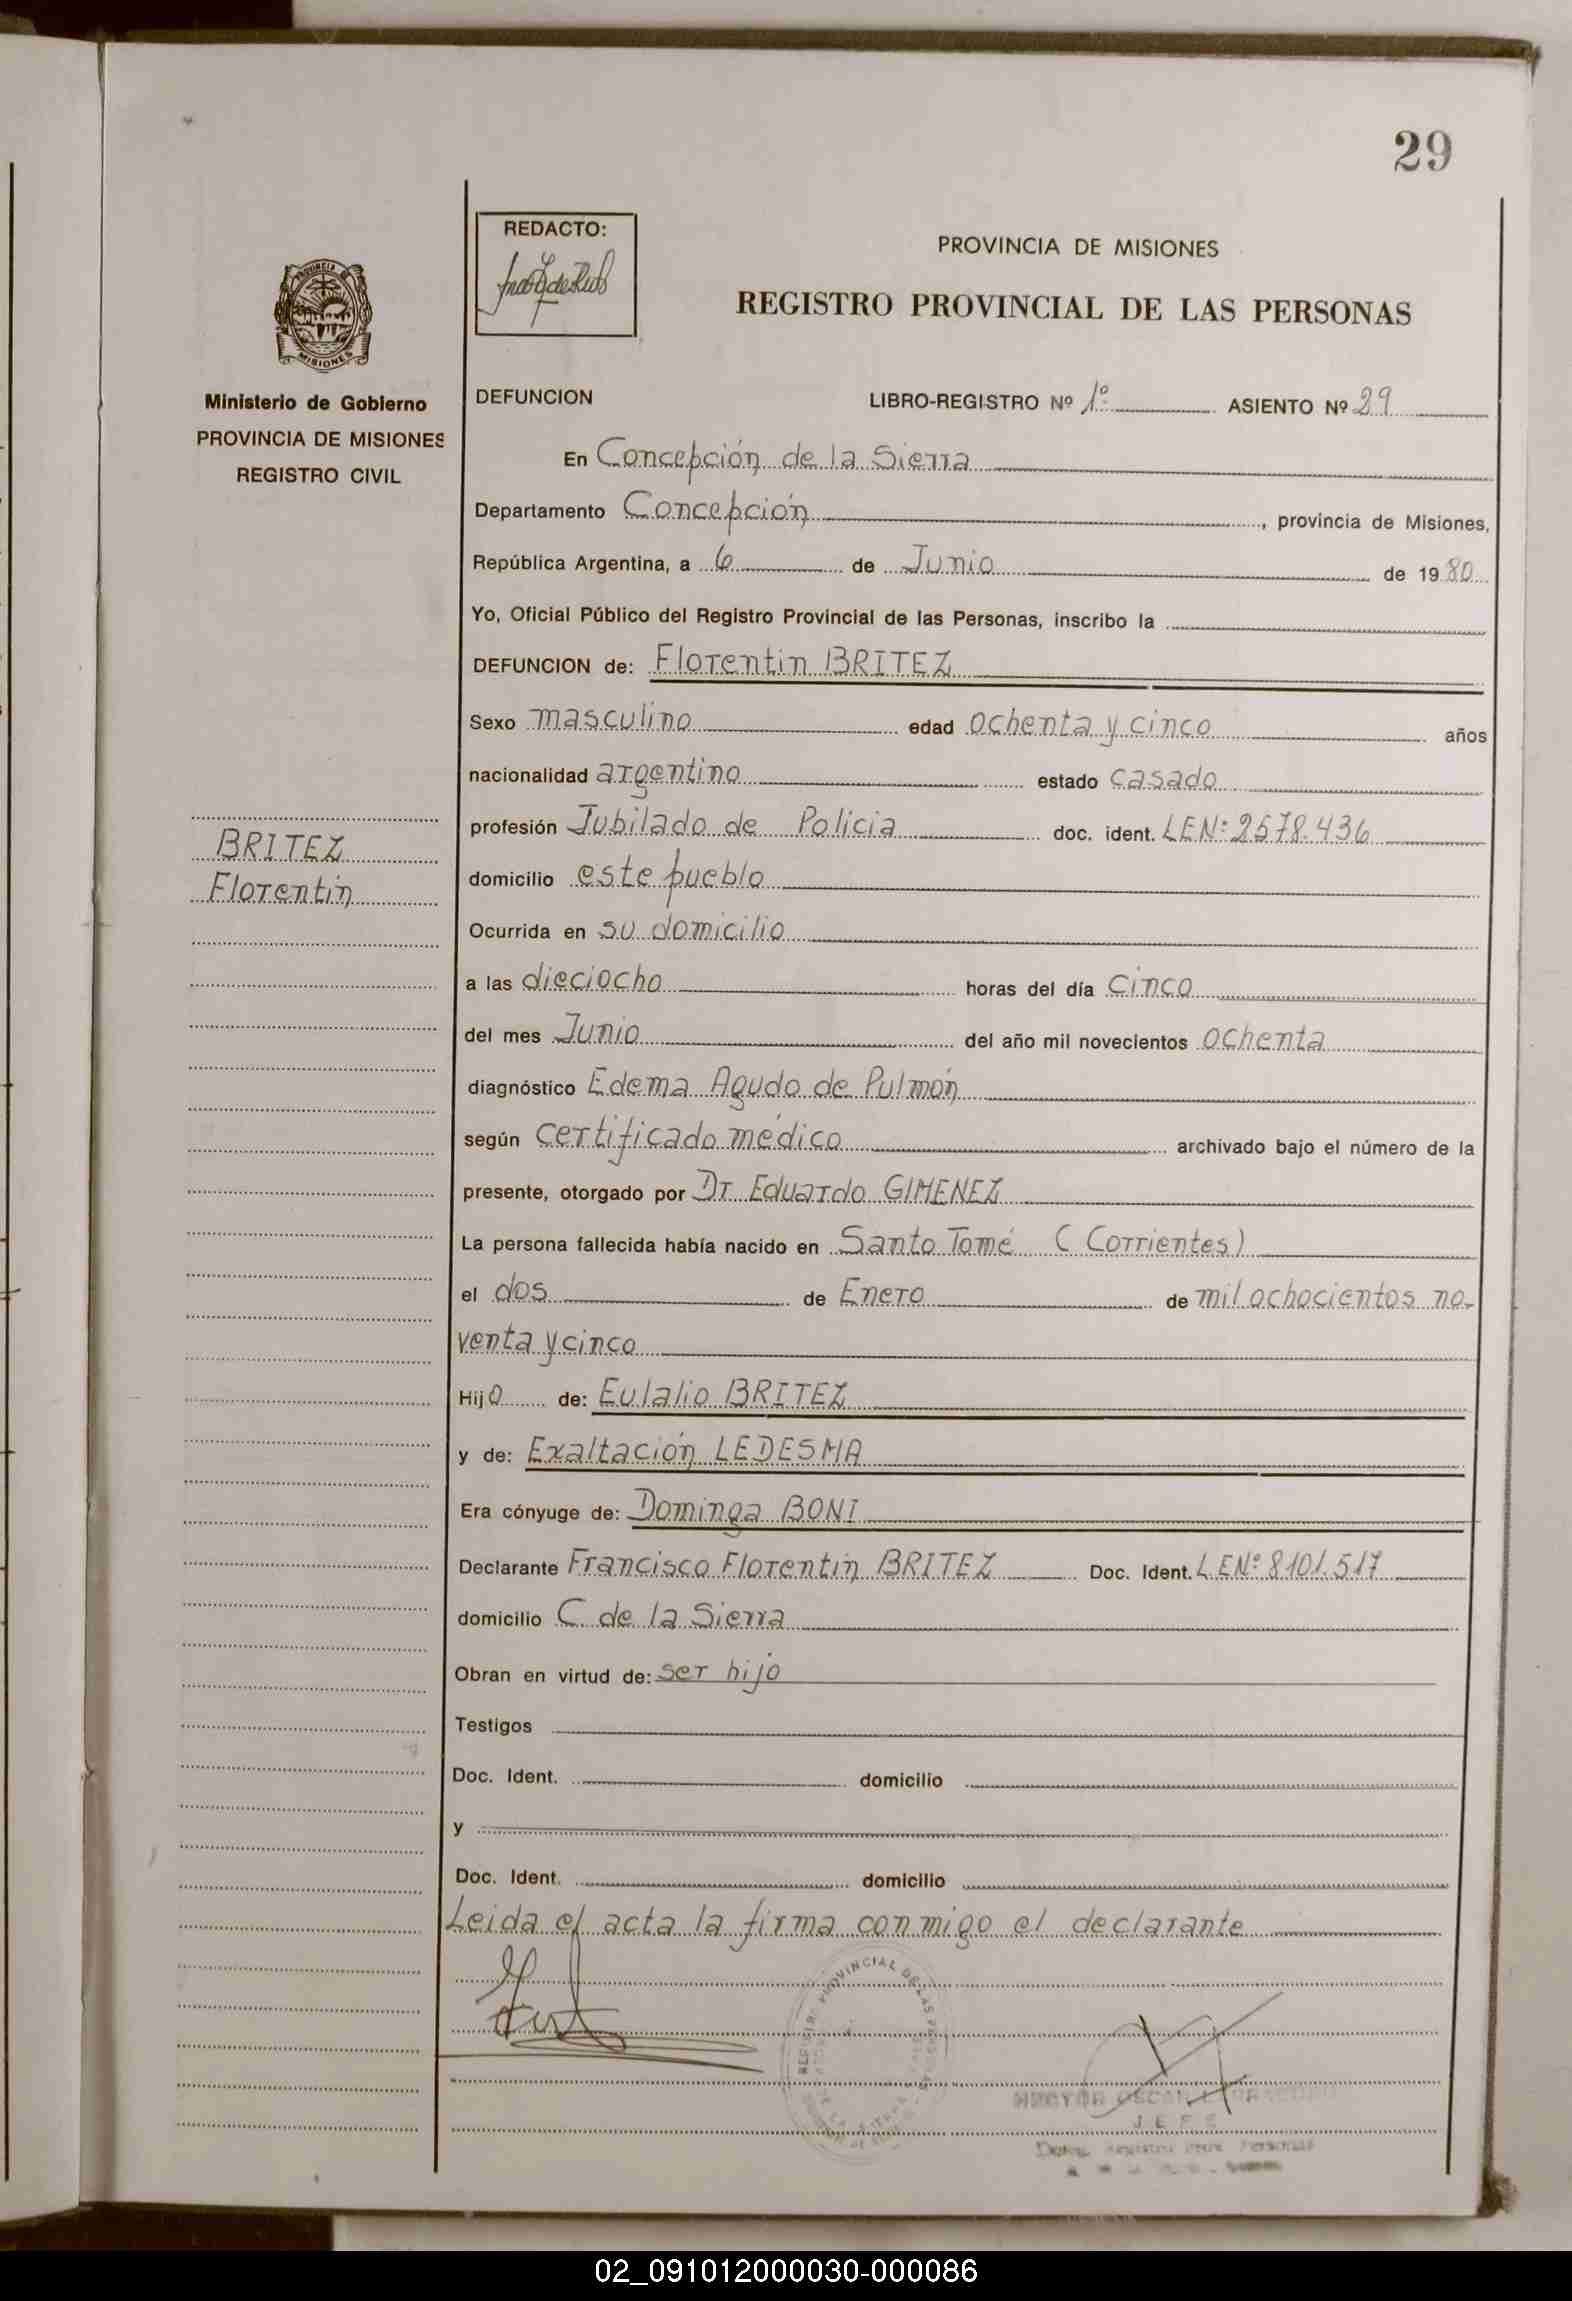 29
REDACTO:
PROVINCIA DE MISIONES
REGISTRO PROVINCIAL DE LAS PERSONAS
PROVINCIA DE
MISIONES
Ministerio de Gobierno
PROVINCIA DE MISIONES
REGISTRO CIVIL
BRITEZ
Florentin
DEFUNCION LIBRO-REGISTRO Nº 1º ASIENTO Nº 29
En Concepción de la Sierra
Departamento Concepción, provincia de Misiones,
República Argentina, a 6 de Junio de 1980
Yo, Oficial Público del Registro Provincial de las Personas, inscribo la
DEFUNCION de: Florentin BRITEZ
Sexo masculino edad ochenta y cinco años
nacionalidad argentino estado casado
profesión Jubilado de Policia doc. ident. LENº 2578.436
domicilio este pueblo
Ocurrida en su domicilio
a las dieciocho horas del día cinco
del mes Junio del año mil novecientos ochenta
diagnóstico Edema Agudo de Pulmón
según certificado médico archivado bajo el número de la
presente, otorgado por Dr Eduardo GIMENEZ
La persona fallecida había nacido en Santo Tomé (Corrientes)
el dos de Enero de mil ochocientos no-
venta y cinco
Hijo de: Eulalio BRITEZ
y de: Exaltación LEDESMA
Era cónyuge de: Dominga BONI
Declarante Francisco Florentin BRITEZ Doc. Ident. LENº 8101.517
domicilio C. de la Sierra
Obran en virtud de: ser hijo
Testigos
Doc. Ident. domicilio
y
Doc. Ident. domicilio
Leida el acta la firma conmigo el declarante
PROVINCIAL DE LAS
HECTOR OSCAR
JEFE
02_091012000030-000086